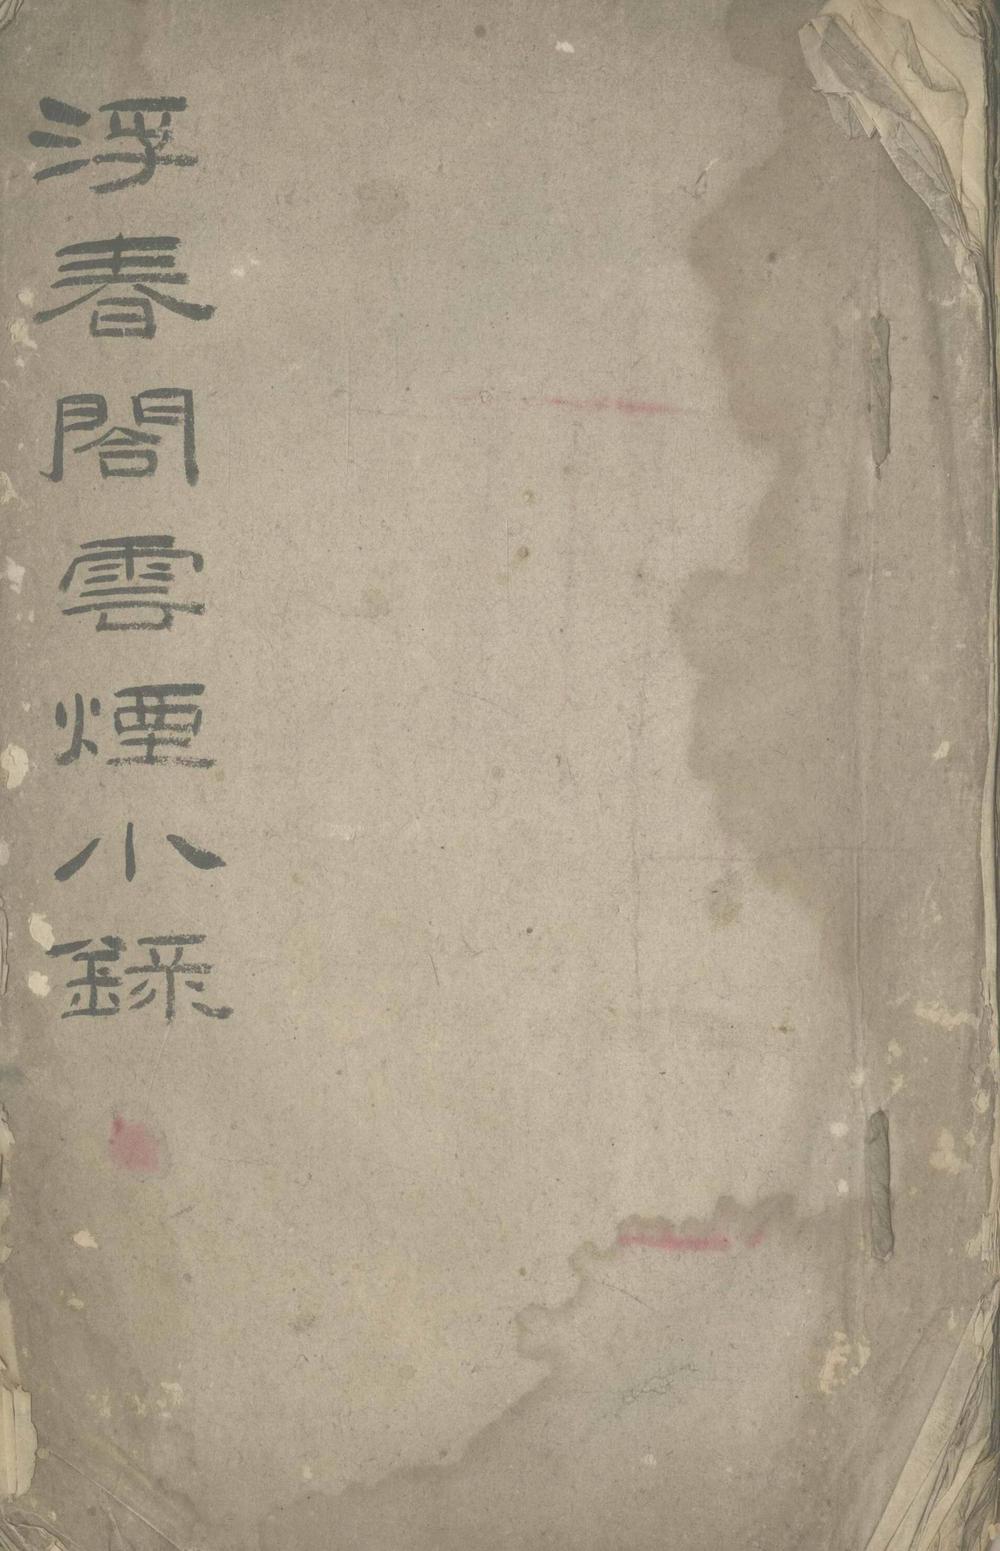 浮春閤雲煙小錄